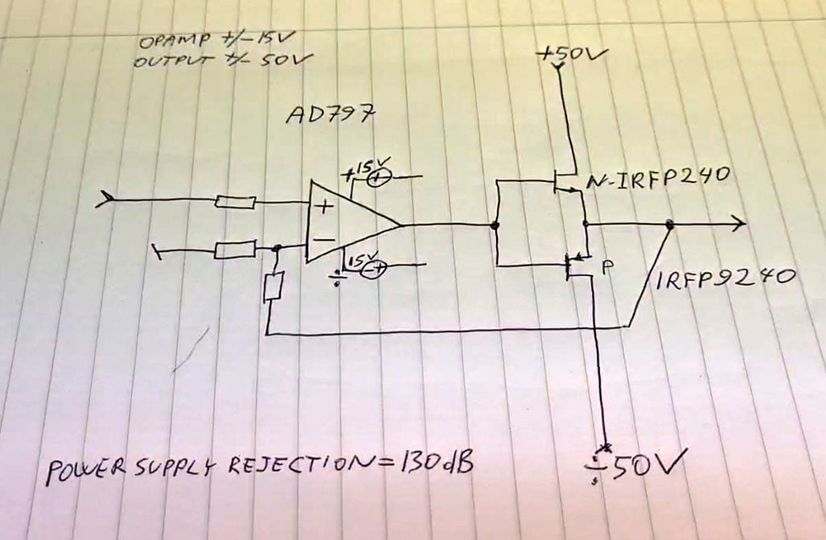 OPAMP +/- 15V
OUTPUT +/- 50V
+50V
AD797
+15V
+
N-IRFP240
+
−
15V
+
÷
P
IRFP9240
POWER SUPPLY REJECTION = 130dB
÷50V